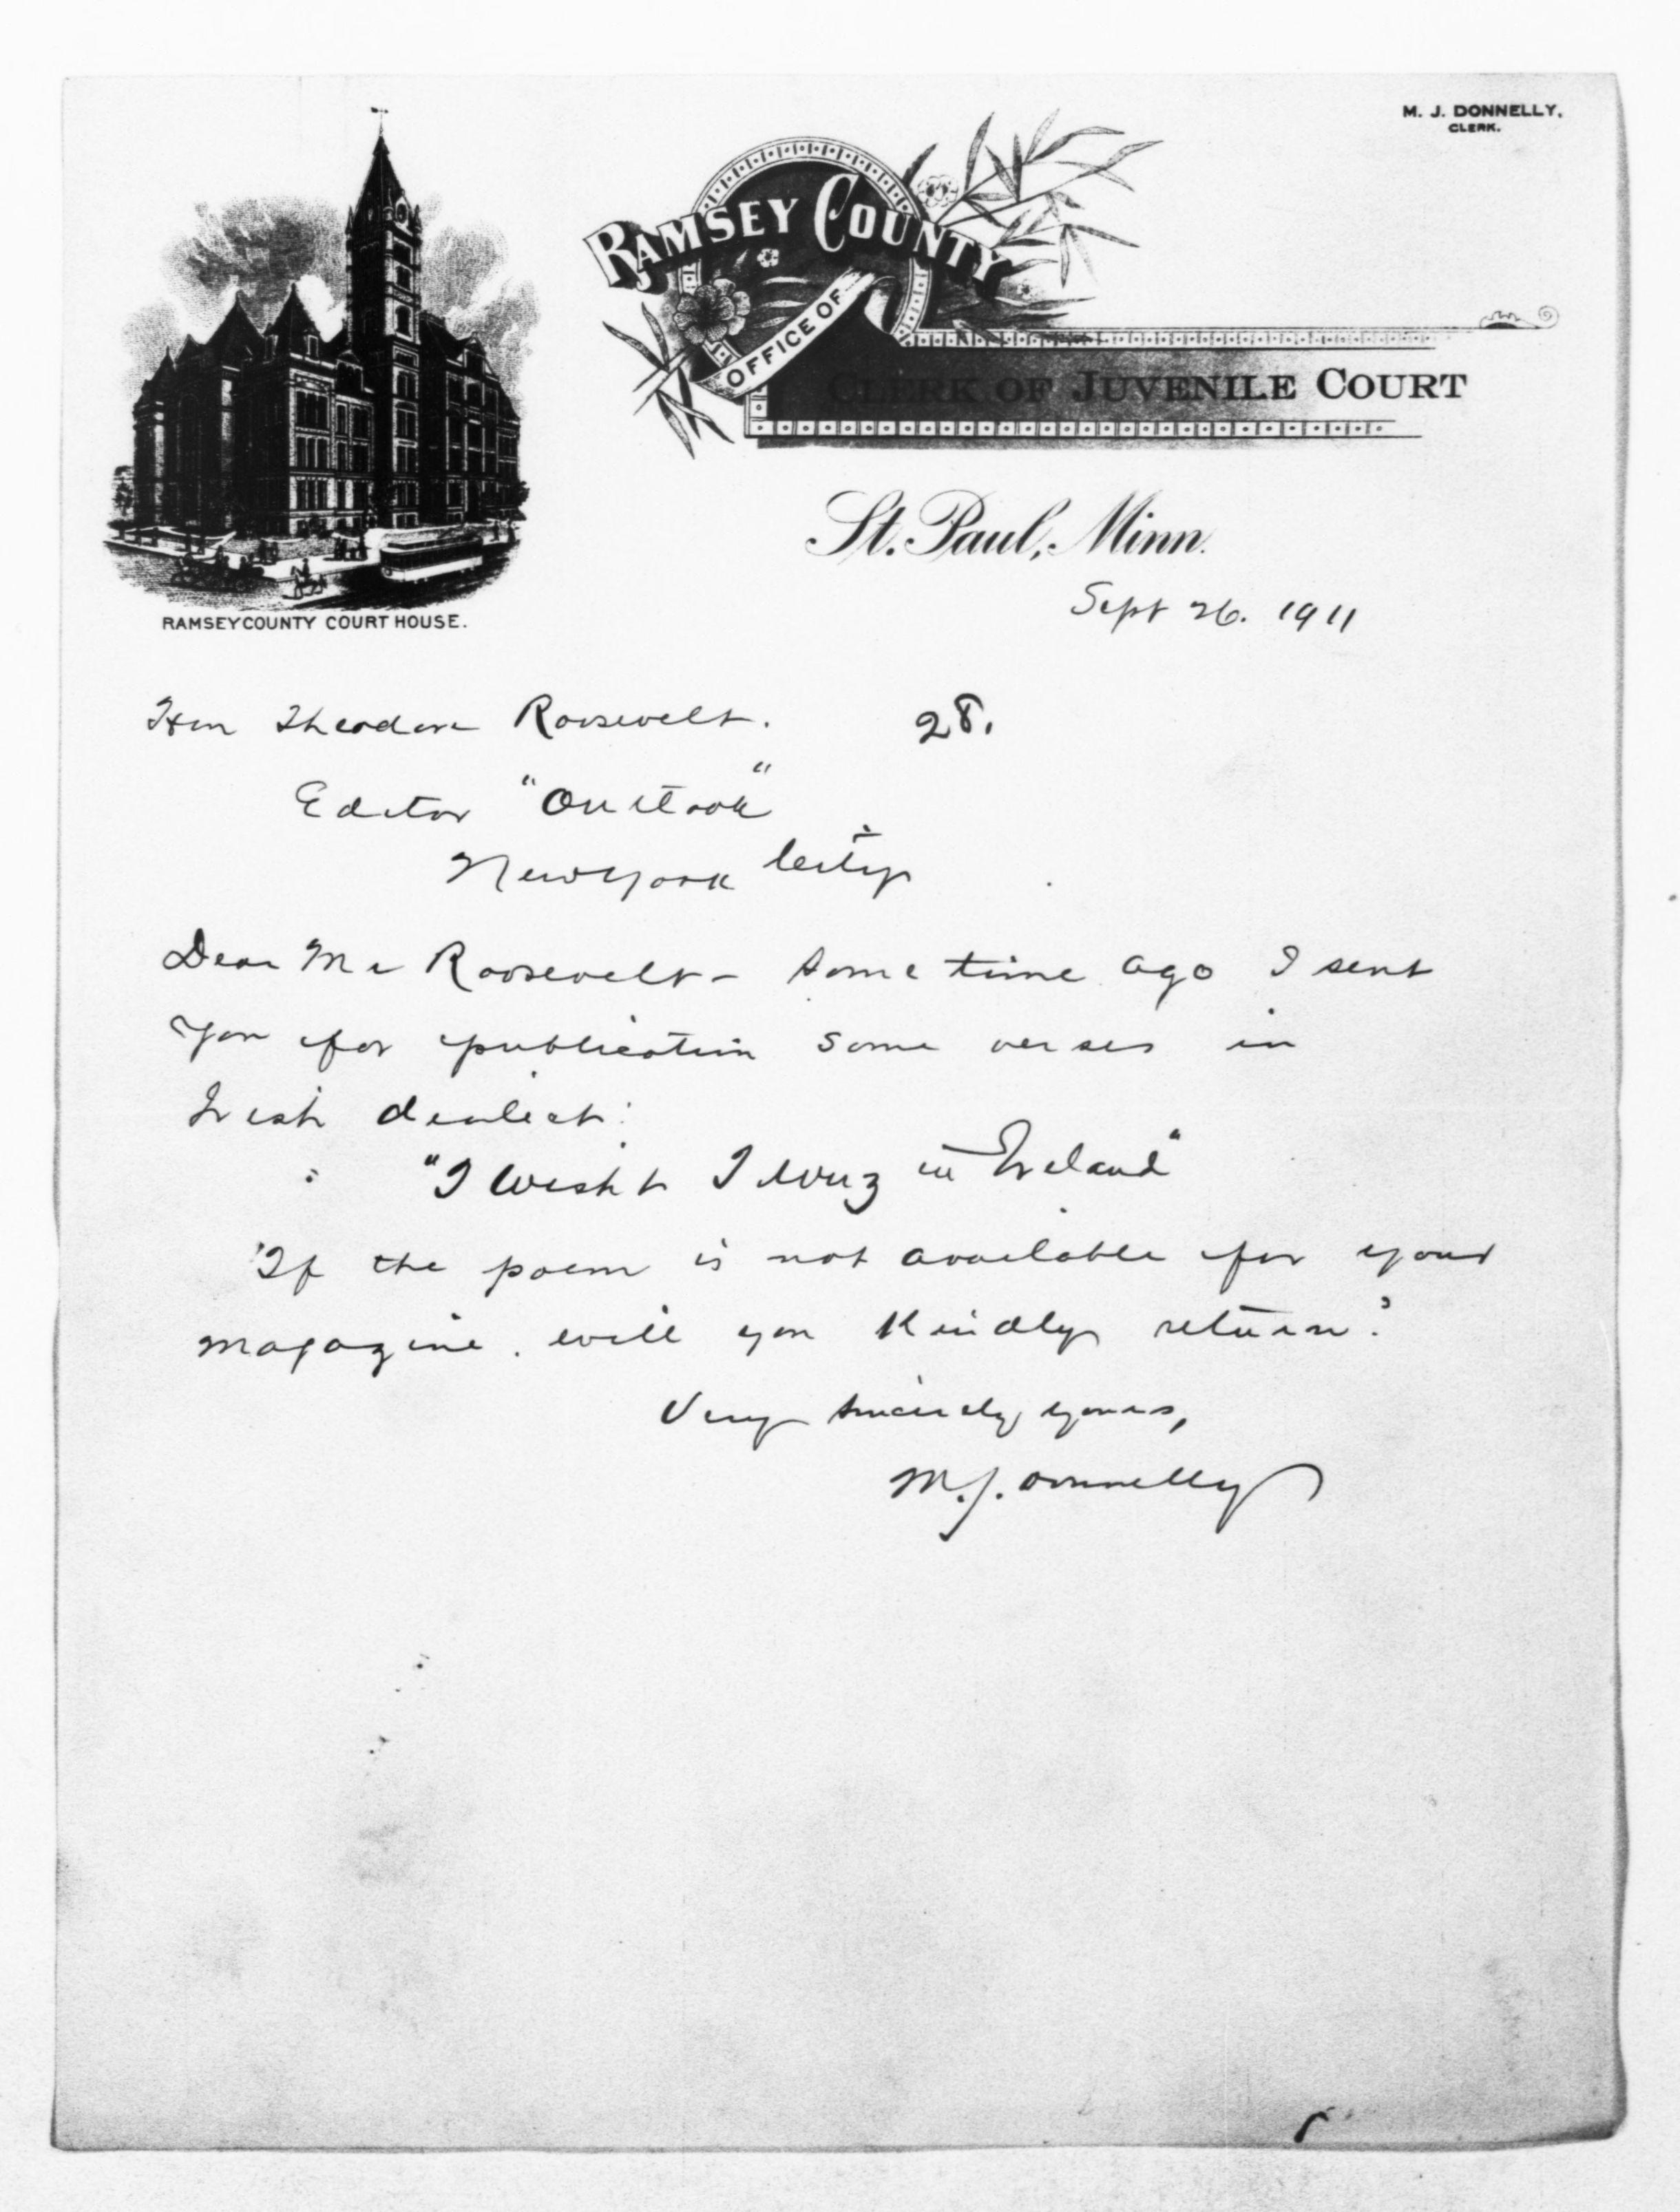 M. J. DONNELLY,
CLERK.
RAMSEY COUNTY
OFFICE OF
CLERK OF JUVENILE COURT
RAMSEY COUNTY COURT HOUSE.
St. Paul, Minn.
Sept 26. 1911
Hon Theodore Roosevelt. 28.
Editor "Outlook"
New York City
Dear Mr Roosevelt - Some time ago I sent
you for publication some verses in
Irish dialect:
"I Wisht I Wuz in Ireland"
If the poem is not available for your
magazine. will you kindly return?
Very sincerely yours,
M. J. Donnelly